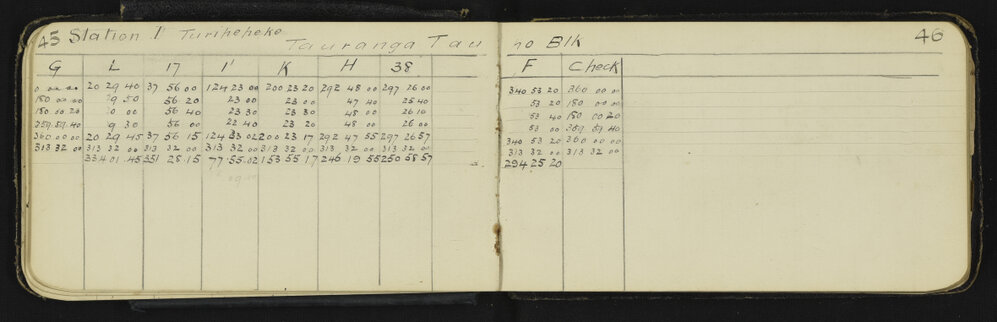 45 Station I' Turihepeke Tauranga Tau po Blk 46
G L 17 I' K H 38 F Check
0 00 00 20 29 40 37 56 00 124 23 00 200 23 20 292 48 00 297 26 00 340 53 20 360 00 00
180 00 00 9 50 56 20 23 00 23 00 47 40 25 40 53 20 180 00 00
180 00 20 0 00 56 40 23 30 23 30 48 00 26 10 53 40 180 00 20
359 59 40 9 30 56 00 22 40 23 20 48 00 26 00 53 00 359 59 40
360 00 00 20 29 45 37 56 15 124 23 02 200 23 17 292 47 55 297 26 57 340 53 20 360 00 00
313 32 00 313 32 00 313 32 00 313 32 00 313 32 00 313 32 00 313 32 00 313 32 00 313 32 00
334 01 45 351 28 15 77 55 02 153 55 17 246 19 55 250 58 57 294 25 20